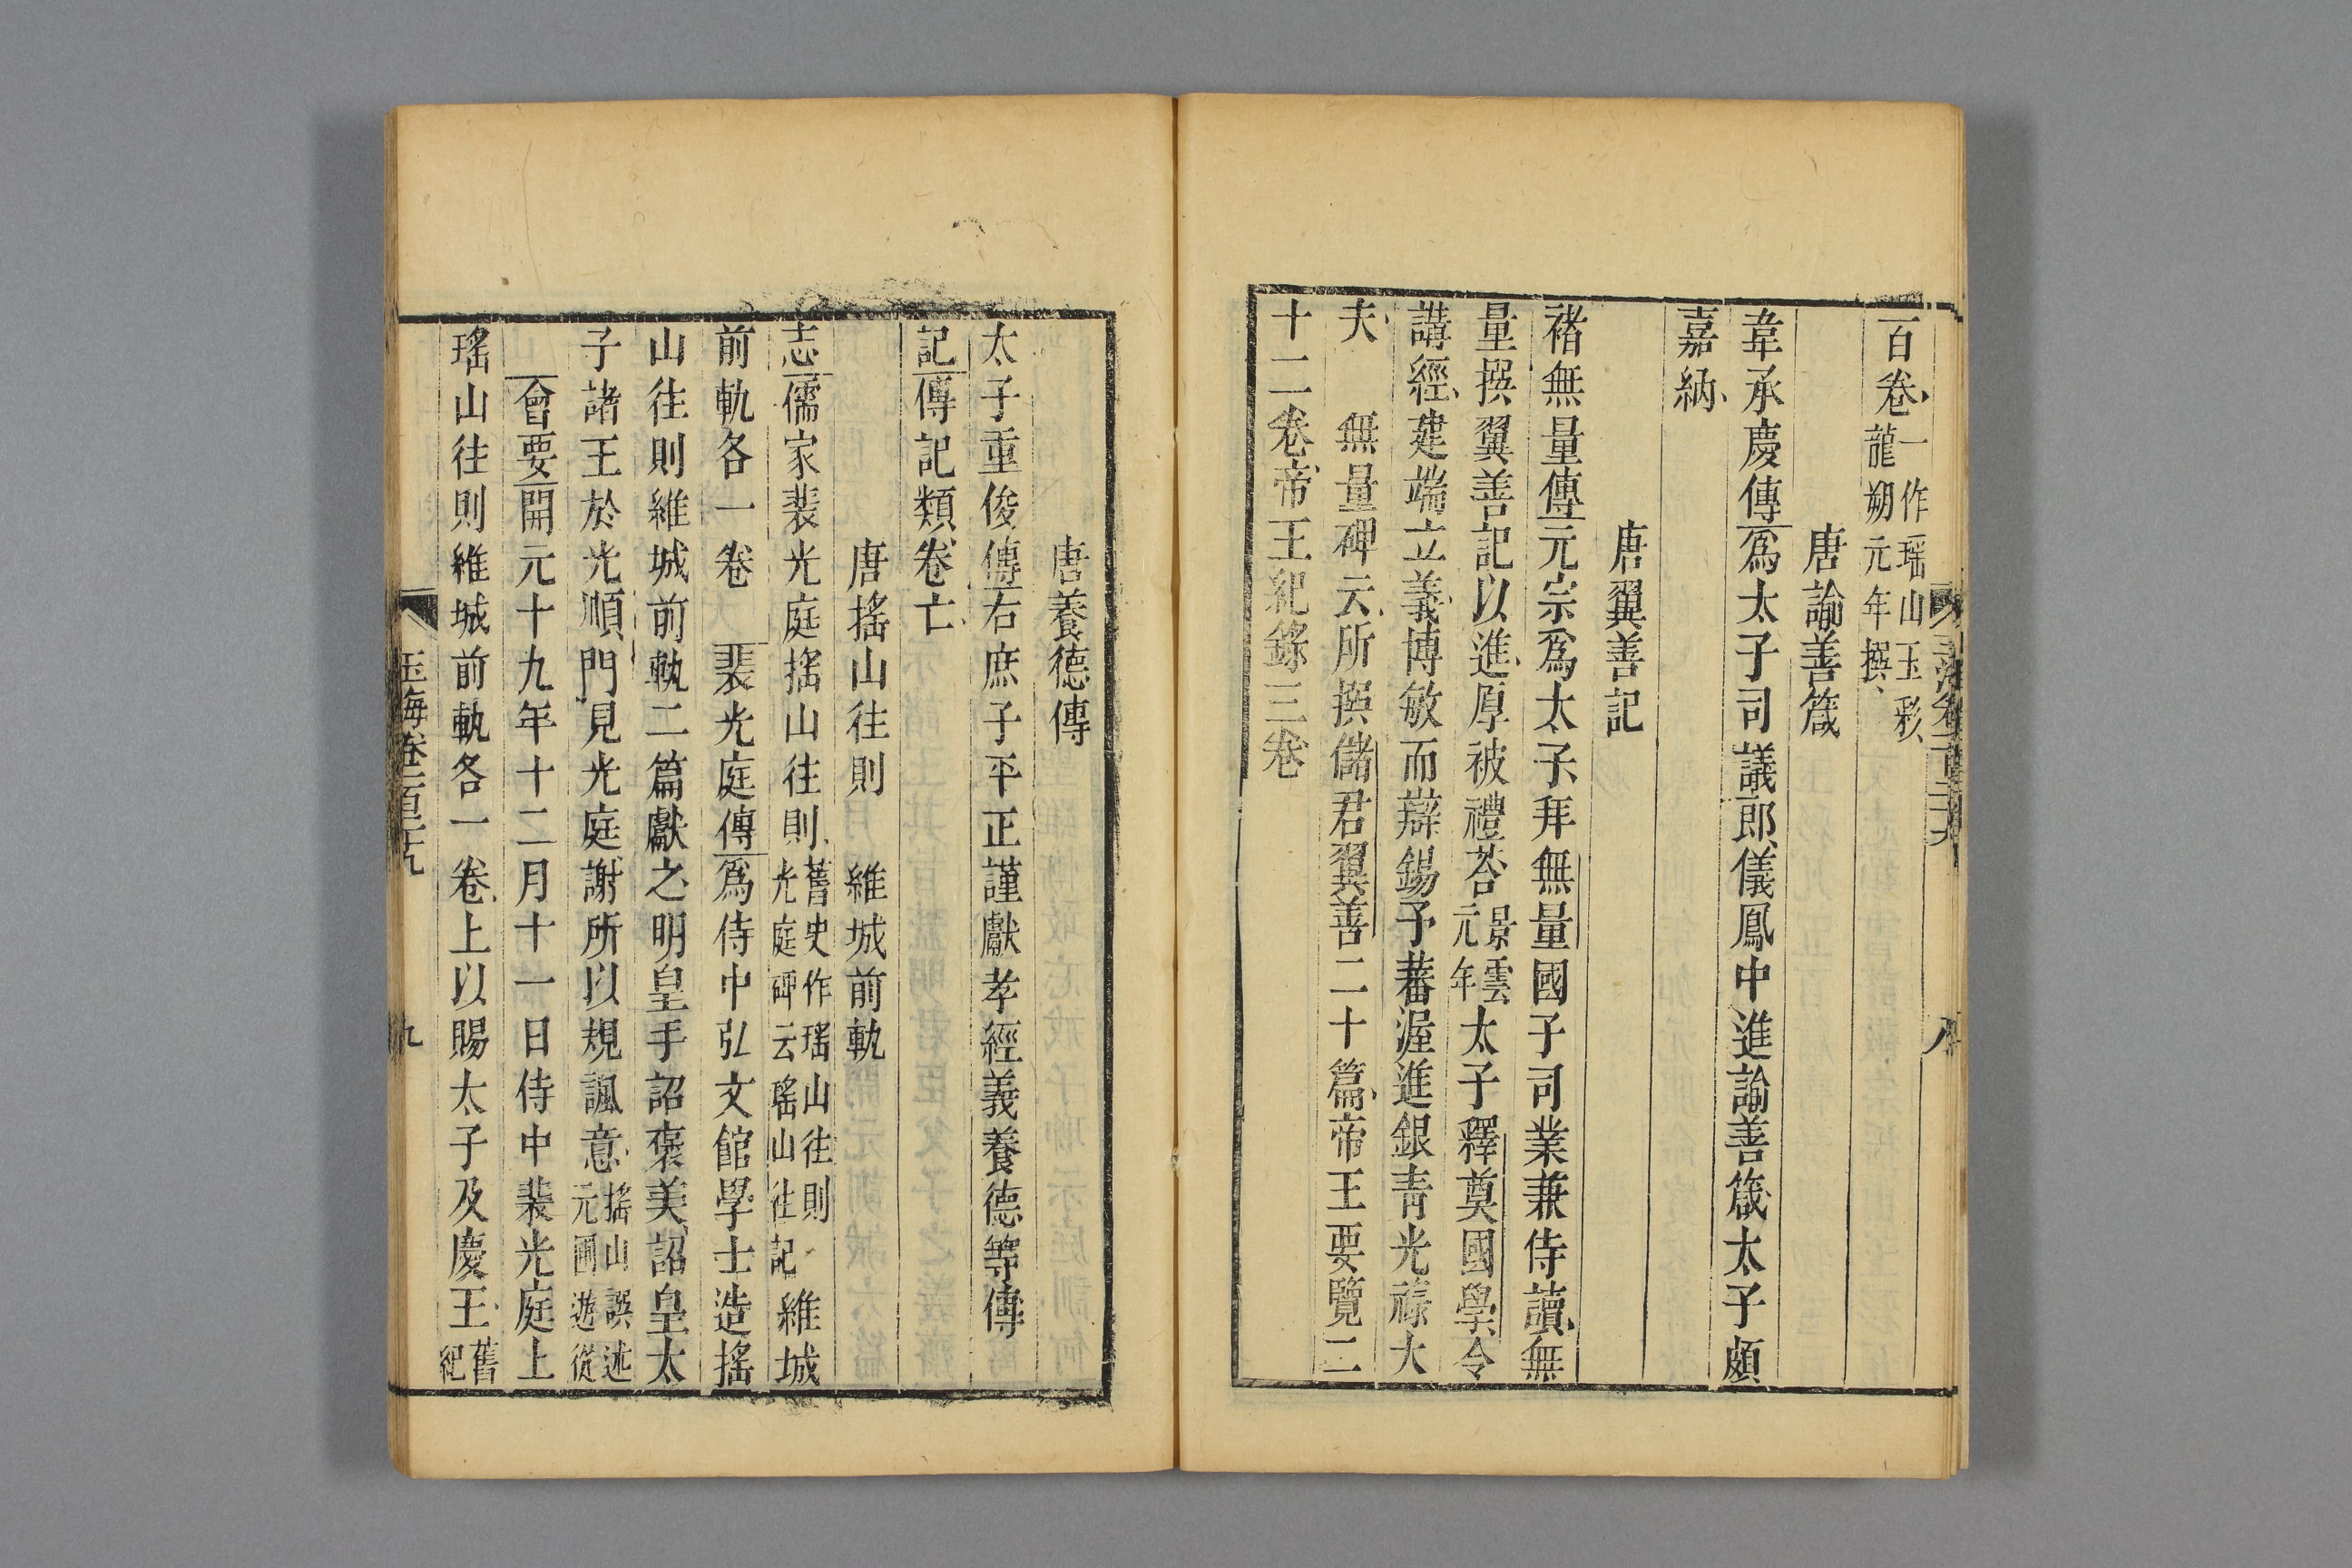 百卷一作瑶山玉彩龍朔元年撰
唐諭善箴
韋承慶傳爲太子司議郎儀鳳中進諭善箴太子頗
嘉納
唐翼善記
褚無量傳元宗爲太子拜無量國子司業兼侍讀無
量撰翼善記以進厚被禮荅景雲元年太子釋奠國學令
講經建端立義博敏而辯錫予蕃渥進銀青光祿大
夫 無量碑云所撰儲君翼善二十篇帝王要覽二
十二卷帝王紀錄三卷
八
唐養德傳
太子重俊傳右庶子平正謹獻孝經義養德等傳
記傳記類卷亡
唐搖山往則 維城前軌
志儒家裴光庭搖山往則舊史作瑤山往則光庭碑云瑤山往記維城
前軌各一卷 裴光庭傳爲侍中弘文館學士造搖
山往則維城前軌二篇獻之明皇手詔褒美詔皇太
子諸王於光順門見光庭謝所以規諷意搖山誤述元圃遊從
會要開元十九年十二月十一日侍中裴光庭上
瑤山往則維城前軌各一卷上以賜太子及慶王舊紀
玉海卷一百二十九
九